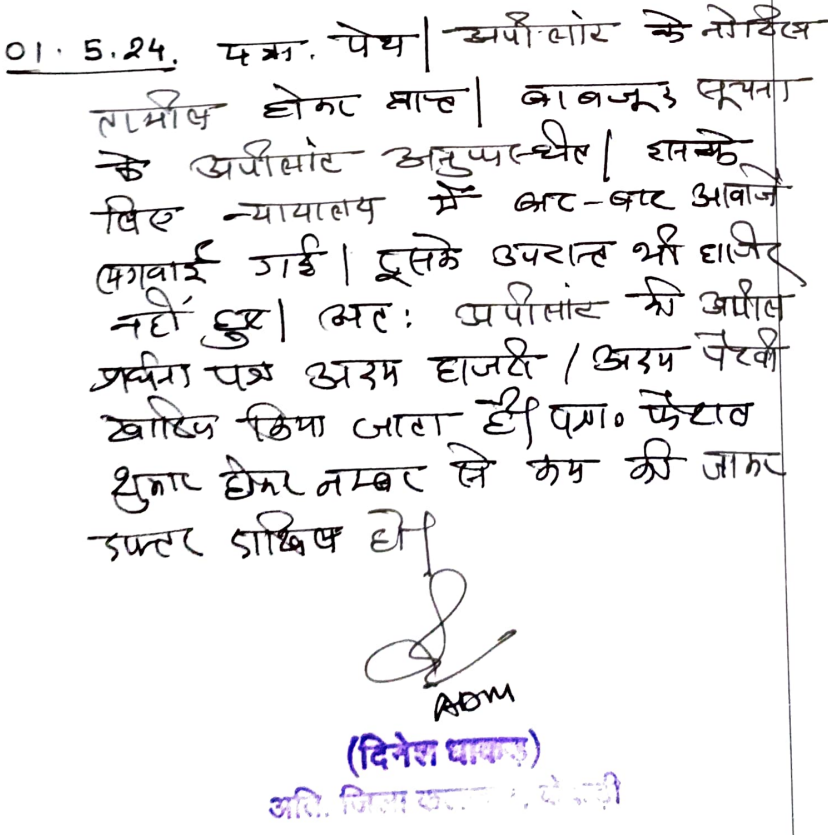 01.5.24. पत्रा. पेश| अपीलांट के नोटिस
तामील होकर प्राप्त| बावजूद सूचना
के अपीलांट अनुपस्थित| इनके
लिए न्यायालय में बार-बार आवाजें
लगवाई गई| इसके उपरान्त भी हाजिर
नहीं हुए| अत: अपीलांट की अपील
प्रार्थना पत्र अदम हाजरी / अदम पैरवी
खारिज किया जाता है| पत्रा० फैसल
शुमार होकर नम्बर से कम की जाकर
दफ्तर दाखिल हो|
ADM
(दिनेश धाकड़)
अति. जिला